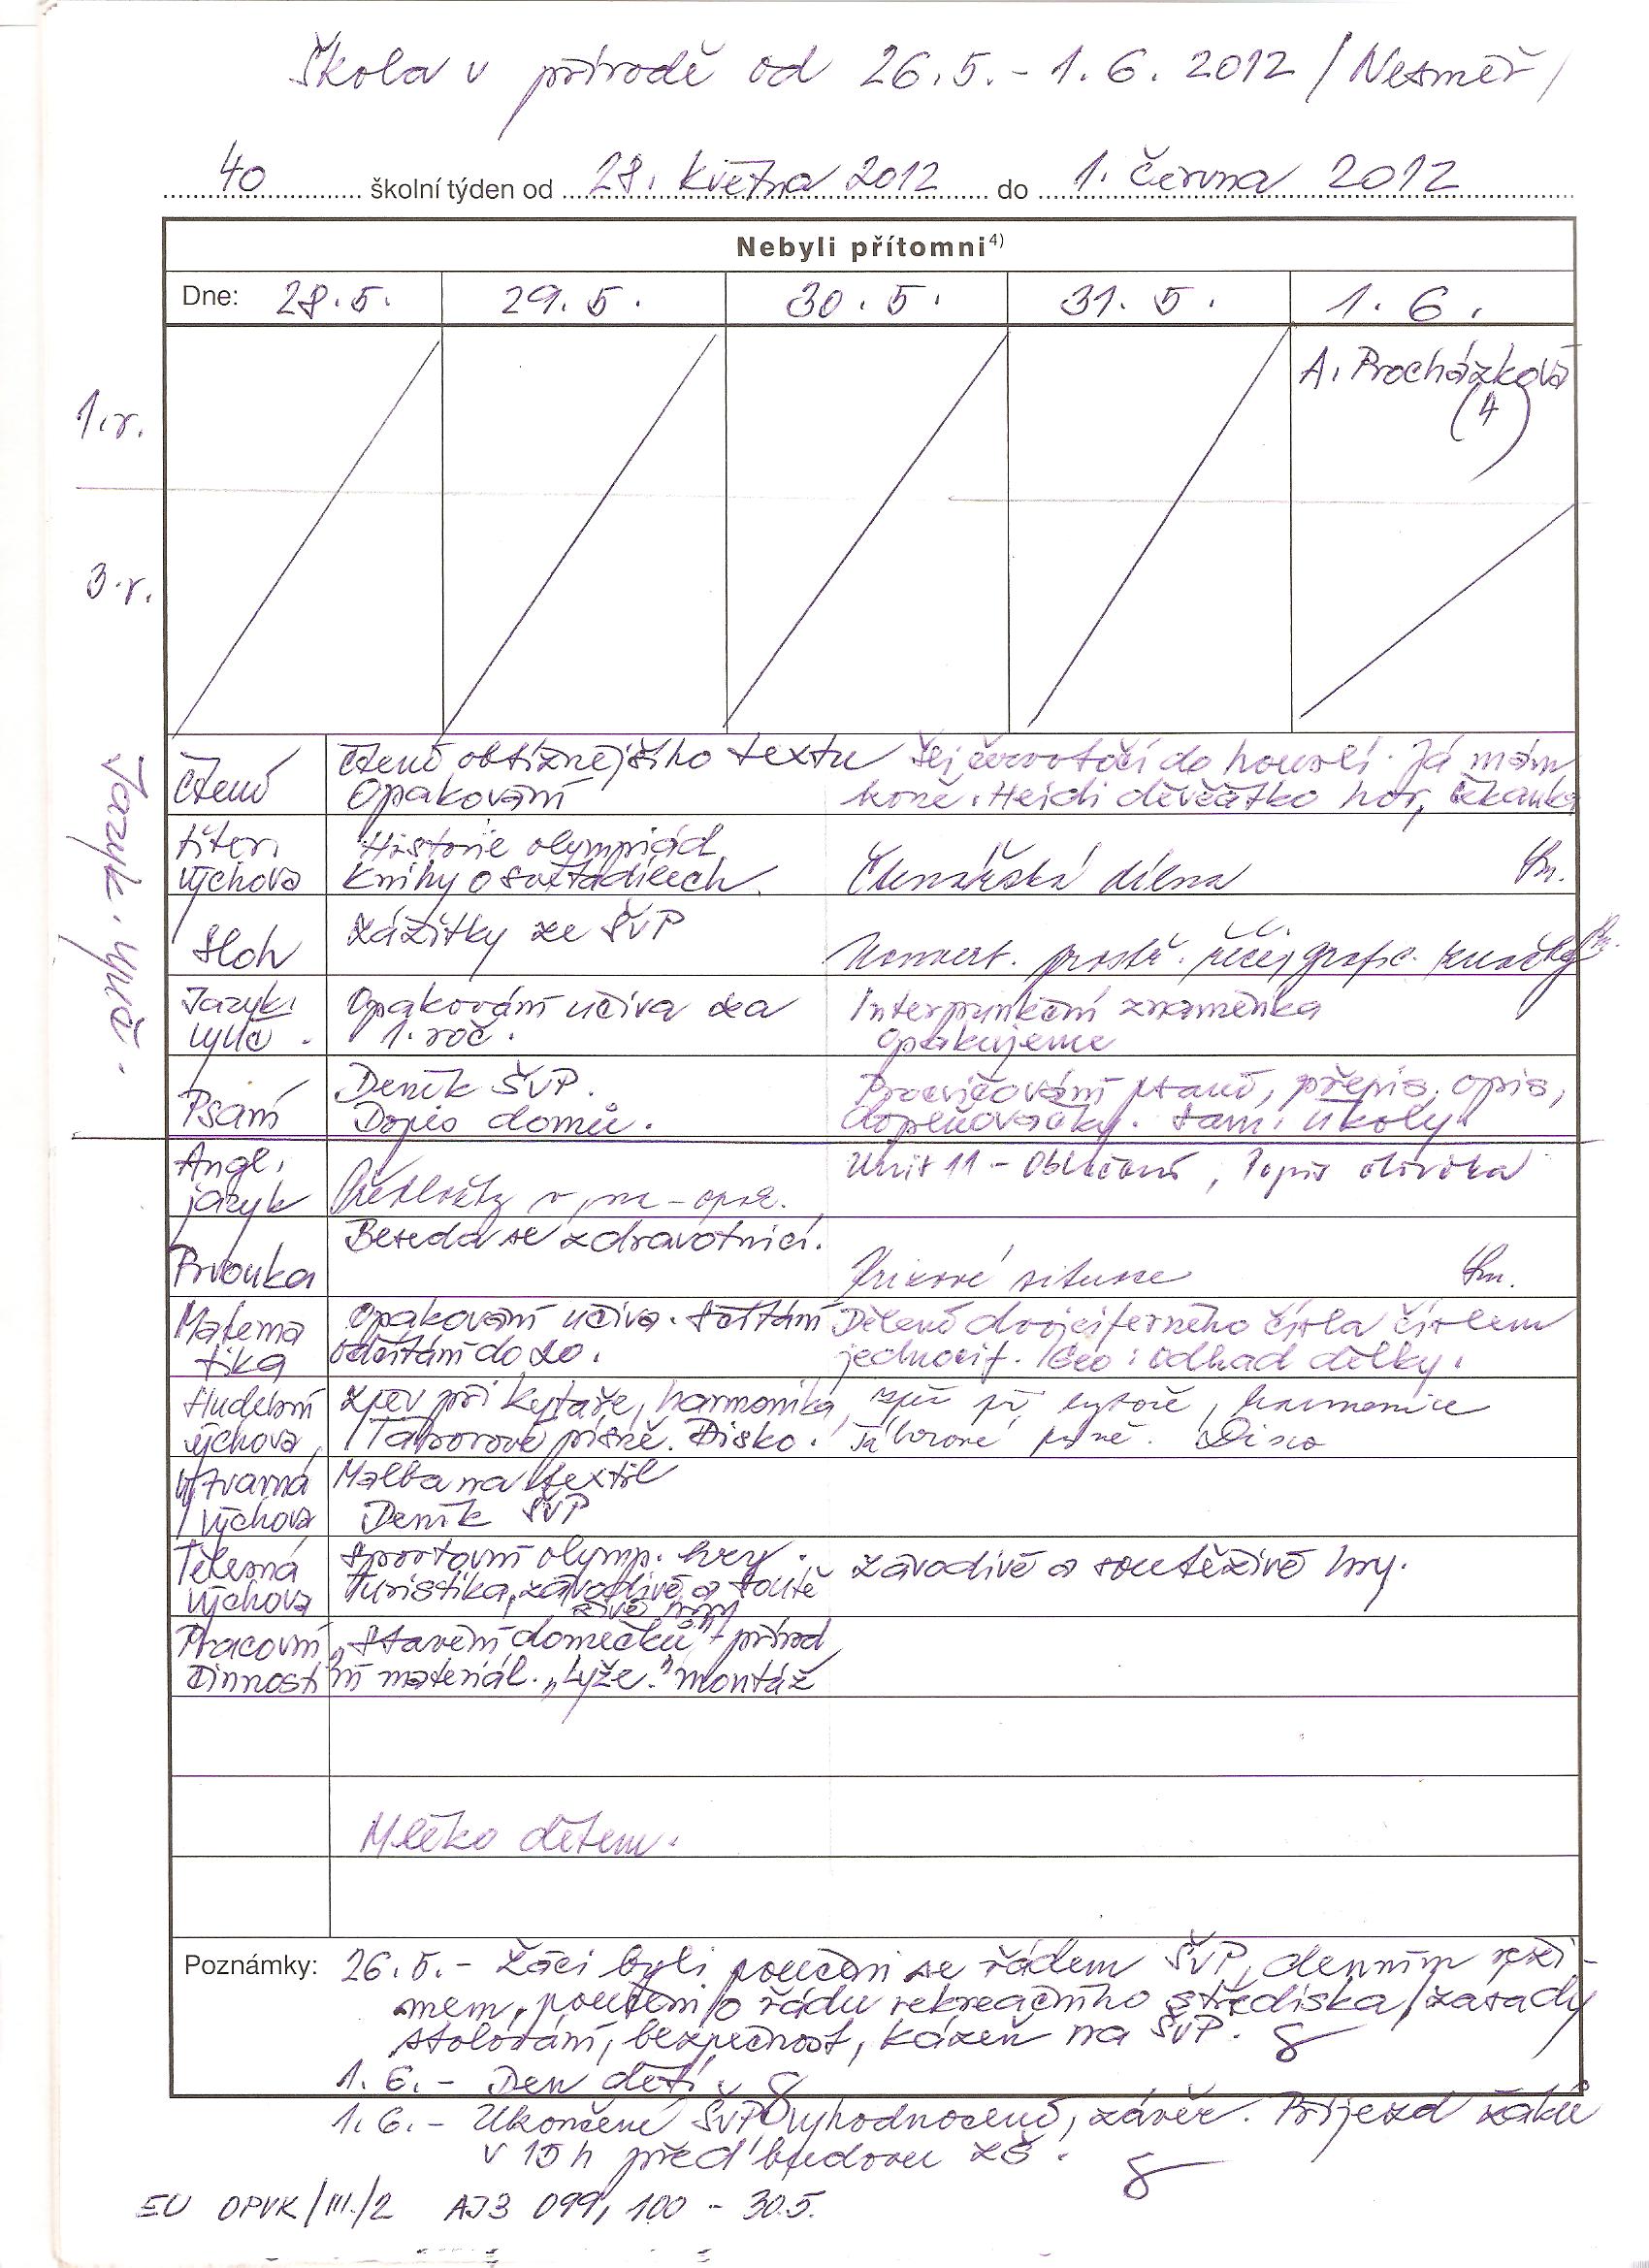 Škola v přírodě od 26.5. - 1.6. 2012 / Nesměř /
40 školní týden od 28. května 2012 do 1. června 2012
Nebyli přítomni4)
Dne: 28.5. 29.5. 30.5. 31.5. 1.6.
A. Procházková
(4)
1.r.
3.r.
Jazyk. vyuč.
Čtení
Čtení obtížnějšího textu
Opakování
Šej červotočí do houslí. Já mám
koně. Heidi děvčátko hor, čekanka
Liter.
výchova
Historie olympiád
Knihy o světadílech.
Čtenářská dílna
Sloh
Zážitky ze ŠVP
Konvert. prostř. řeči, grafic. značky
Jazyk.
vyuč.
Opakování učiva za
1. roč.
Interpunkční znaménka
Opakujeme
Psaní
Deník ŠVP.
Dopis domů.
Procvičování psaní, přepis, opis,
doplňovačky. Sam. úkoly.
Angl.
jazyk
Předložky v, na - opak.
Unit 11 - Oblečení, Popis člověka
Prvouka
Beseda se zdravotnicí.
Krizové situace
Matema
tika
Opakování učiva. Sčítání
odčítání do 20.
Dělení dvojciferného čísla číslem
jednocif. Geo: odhad délky.
Hudební
výchova
Zpěv při kytaře, harmonika,
Táborové písně. Disko.
zpěv při kytaře, harmonice
Táborové písně. Disco
Výtvarná
výchova
Malba na textil
Deník ŠVP
Tělesná
výchova
Sportovní olymp. hry.
Turistika, závodivé a soutě
živé hry
závodivé a soutěživé hry.
Pracovní
činnosti
„Stavění domečků" - přírod
ní materiál. „Lyže." montáž
Mléko dětem.
Poznámky: 26.5. - Žáci byli poučeni se řádem ŠVP, denním reži-
mem, poučeni o řádu rekreačního střediska / zásady
stolování, bezpečnost, kázeň na ŠVP.
1.6. - Den dětí.
1.6. - Ukončení ŠVP, vyhodnocení, závěr. Příjezd žáků
v 15 h před budovu ZŠ.
EU OPVK/III./2 AJ3 099, 100 - 30.5.